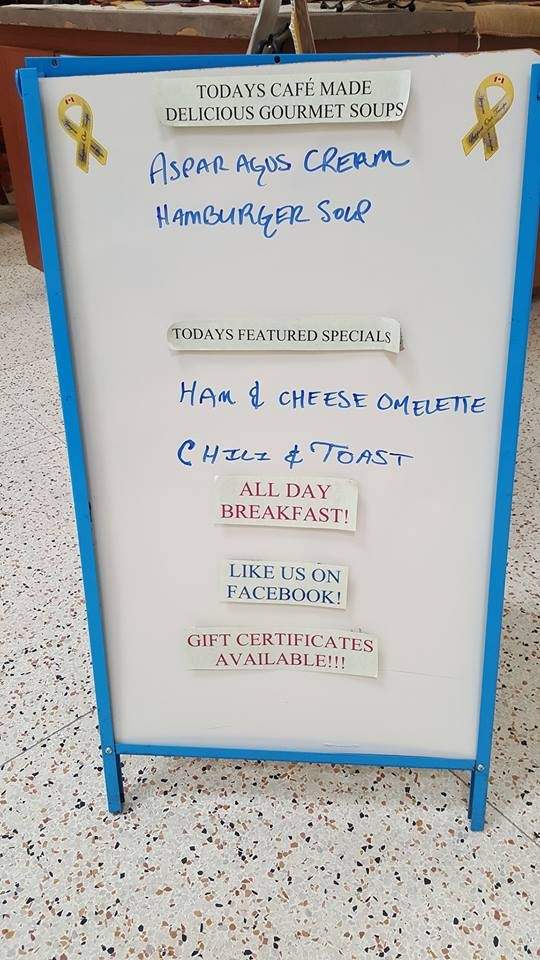 TODAYS CAFÉ MADE
DELICIOUS GOURMET SOUPS
ASPARAGUS CREAM
HAMBURGER SOUP
TODAYS FEATURED SPECIALS
HAM & CHEESE OMELETTE
CHILI & TOAST
ALL DAY
BREAKFAST!
LIKE US ON
FACEBOOK!
GIFT CERTIFICATES
AVAILABLE!!!